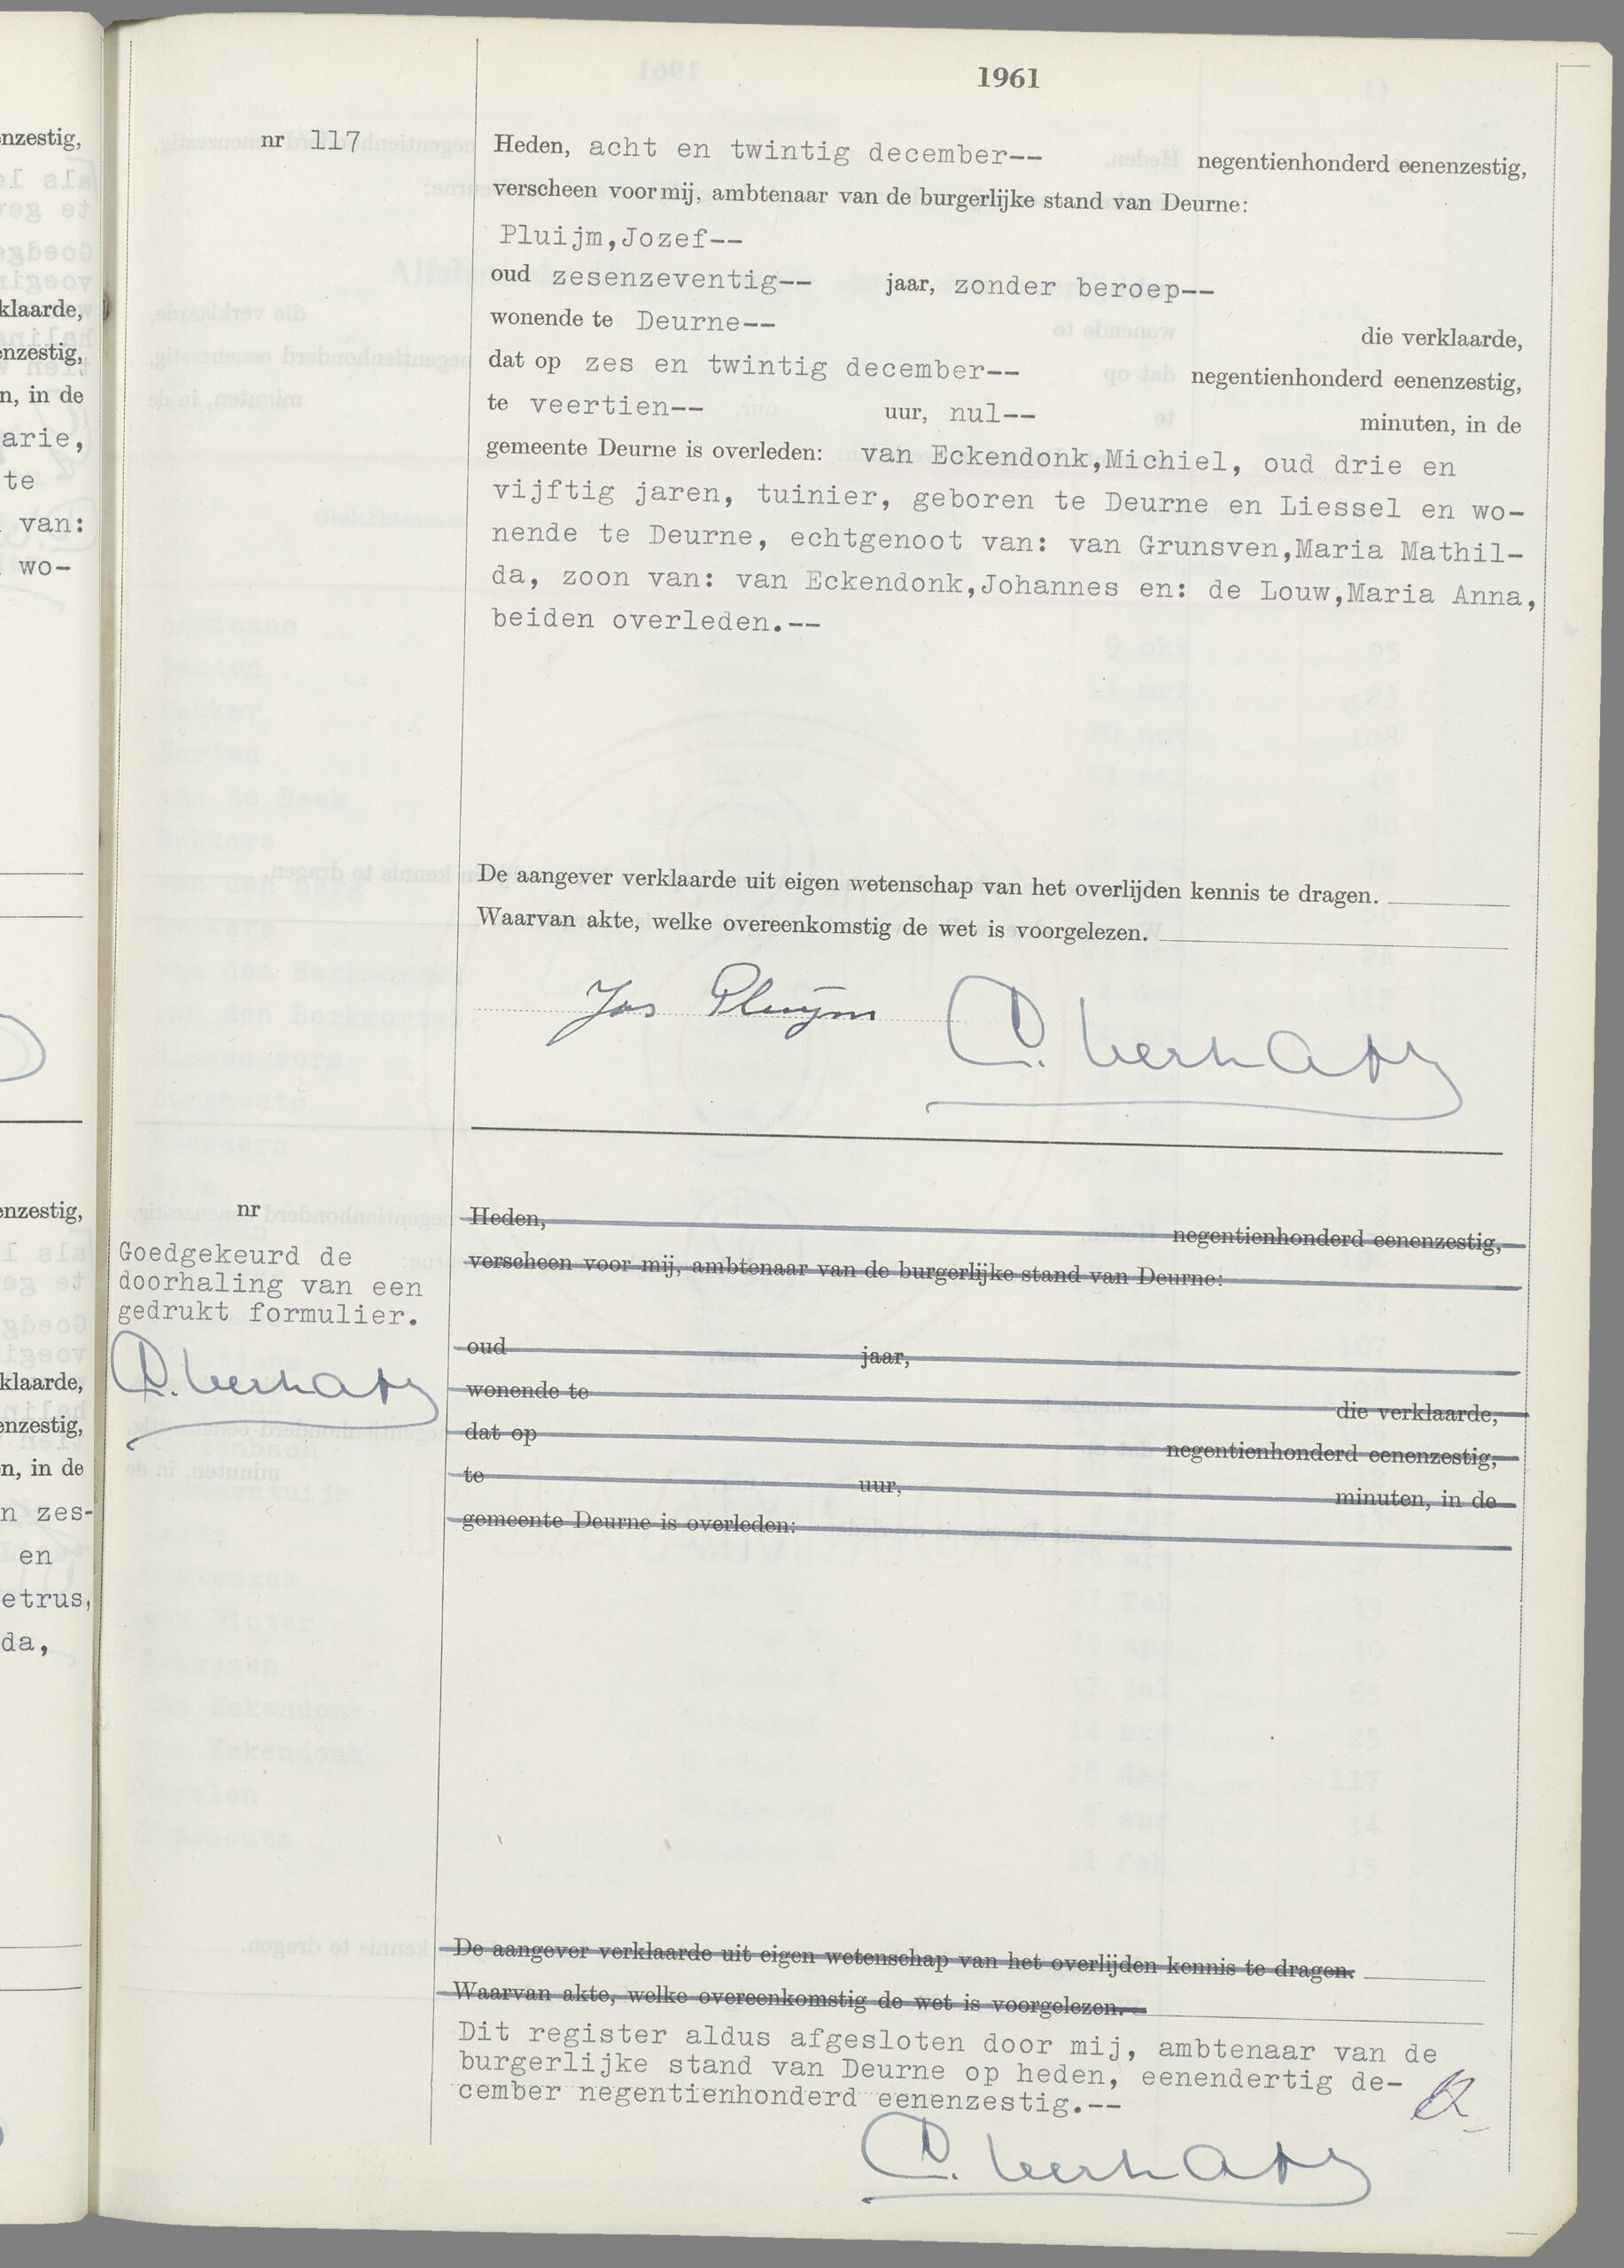 1961
nr 117
Heden, acht en twintig december-- negentienhonderd eenenzestig,
verscheen voor mij, ambtenaar van de burgerlijke stand van Deurne:
Pluijm,Jozef--
oud zesenzeventig-- jaar, zonder beroep--
wonende te Deurne-- die verklaarde,
dat op zes en twintig december-- negentienhonderd eenenzestig,
te veertien-- uur, nul-- minuten, in de
gemeente Deurne is overleden: van Eckendonk,Michiel, oud drie en
vijftig jaren, tuinier, geboren te Deurne en Liessel en wo-
nende te Deurne, echtgenoot van: van Grunsven,Maria Mathil-
da, zoon van: van Eckendonk,Johannes en: de Louw,Maria Anna,
beiden overleden.--
De aangever verklaarde uit eigen wetenschap van het overlijden kennis te dragen.
Waarvan akte, welke overeenkomstig de wet is voorgelezen.
Jos Pluijm
nr
Goedgekeurd de
doorhaling van een
gedrukt formulier.
Heden, negentienhonderd eenenzestig,
verscheen voor mij, ambtenaar van de burgerlijke stand van Deurne:
oud jaar,
wonende te die verklaarde,
dat op negentienhonderd eenenzestig,
te uur, minuten, in de
gemeente Deurne is overleden:
De aangever verklaarde uit eigen wetenschap van het overlijden kennis te dragen.
Waarvan akte, welke overeenkomstig de wet is voorgelezen.
Dit register aldus afgesloten door mij, ambtenaar van de
burgerlijke stand van Deurne op heden, eenendertig de-
cember negentienhonderd eenenzestig.--
nzestig,
klaarde,
enzestig,
n, in de
arie,
te
van:
wo-
enzestig,
klaarde,
enzestig,
n, in de
n zes-
en
etrus,
da,